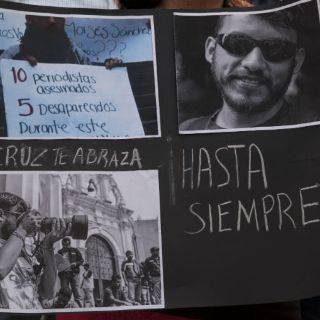 Moises Sanchez
???
10 periodistas
asesinados
5 Desaparecidos
Durante este
CRUZ TE ABRAZA
HASTA
SIEMPRE